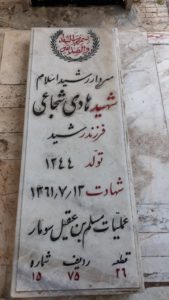 سردار رشید اسلام
شهید هادی شجاعی
فرزند رشید
تولد ۱۳۴۴
شهادت ۱۳۶۱٫۷٫۱۳
عملیات مسلم بن عقیل سومار
قطعه ردیف شماره
۲۶ ۷۵ ۱۵